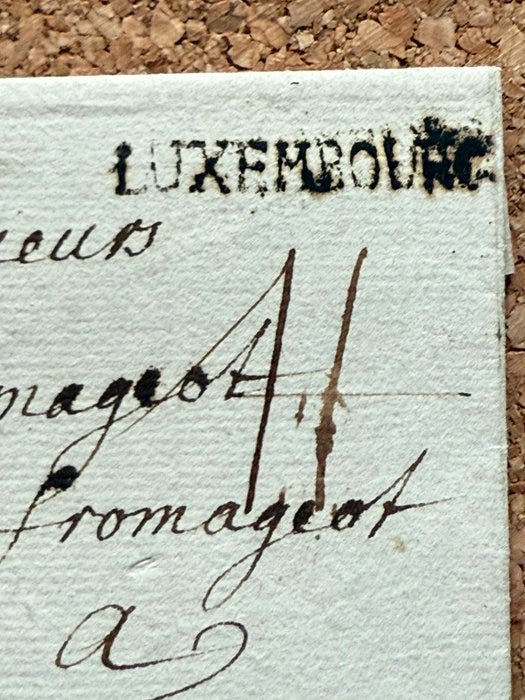 LUXEMBOURG
ieurs
11
mageot
fromageot
a